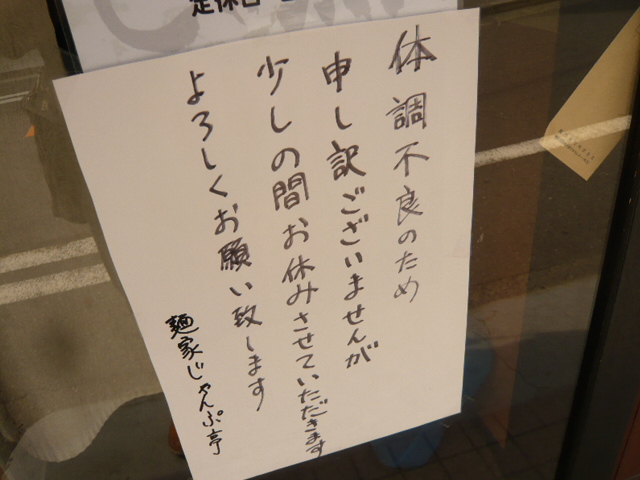 定休日
体調不良のため
申し訳ございませんが
少しの間お休みさせていただきます
よろしくお願い致します
麺家じゃんぷ亭